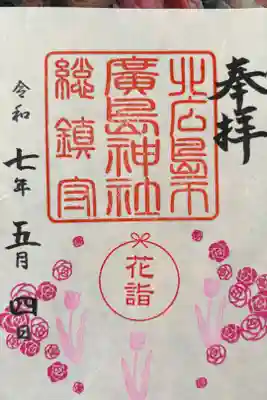 奉拝
北広島市
廣島神社
総鎮守
花詣
令和七年五月四日